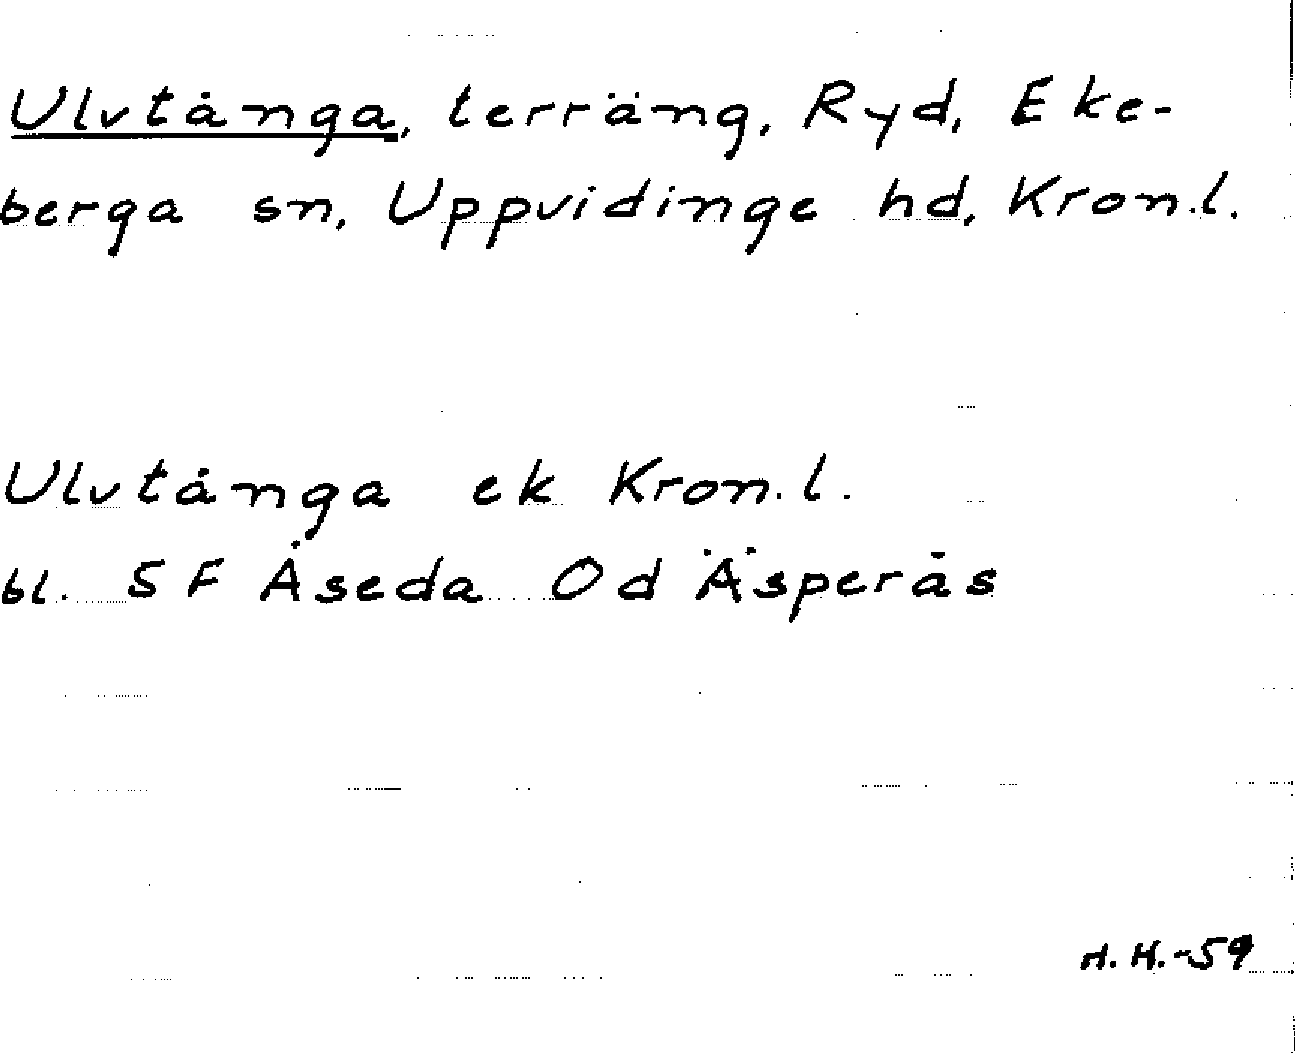 Ulvtånga, terräng, Ryd, Eke-
berga sn, Uppvidinge hd, Kron.l.
Ulvtånga ek Kron.l.
bl. 5 F Åseda Od Äsperås
H. H.-59